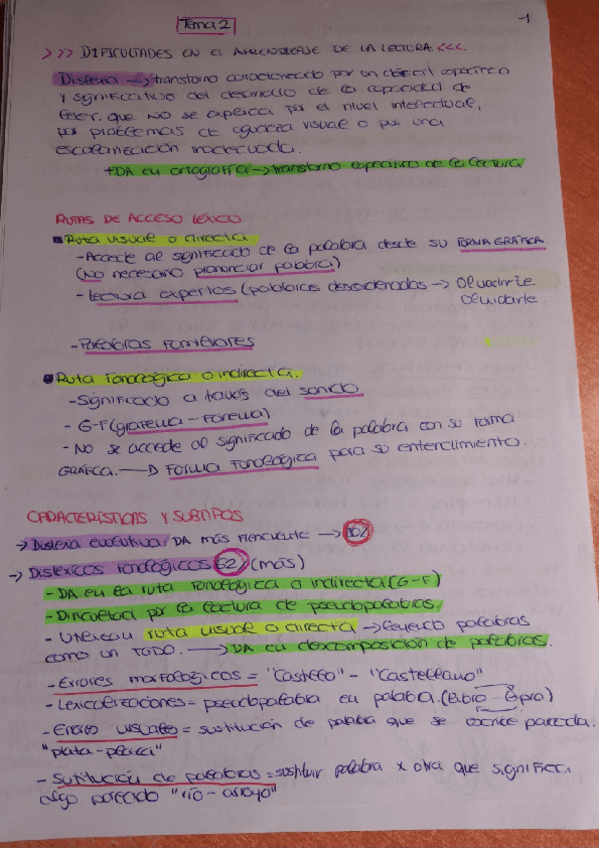 Tema 2
1
>>> DIFICULTADES EN EL APRENDIZAJE DE LA LECTURA <<<
Dislexia --> transtorno caracterizado por un déficit específico
y significativo del desarrollo de la capacidad de
leer, que NO se explica por el nivel intelectual,
por problemas de agudeza visual o por una
escolarización inadecuada.
+DA en ortografía -> transtorno específico de la lectura
RUTAS DE ACCESO LÉXICO
Ruta visual o directa.
- Accede al significado de la palabra desde su FORMA GRÁFICA
(No necesario pronunciar palabra)
- Lectura expertos (palabras desordenadas ->
- Palabras familiares
Ruta fonológica o indirecta.
- Significado a través del sonido
- G-F (grafema - fonema)
- No se accede al significado de la palabra con su forma
GRÁFICA. -> FORMA FONOLÓGICA para su entendimiento.
CARACTERÍSTICAS Y SUBTIPOS
-> Dislexia evolutiva: DA más frencuente -> 80%
-> Disléxicos fonológicos 62 (más)
- DA en la ruta fonológica o indirecta (G-F)
- Dificultad por la lectura de pseudopalabras.
- Utilizan ruta visual o directa -> leyendo palabras
como un TODO. -> DA en descomposición de palabras.
- Errores morfológicos = "Castillo" - "Castellano"
- Lexicalizaciones = pseudopalabra en palabra. (
- Errores visuales = sustitución de palabra que se escribe parecida.
"plata-
- Sutitución de palabras = sustituir palabra x otra que signifique
algo parecido "río - arroyo"